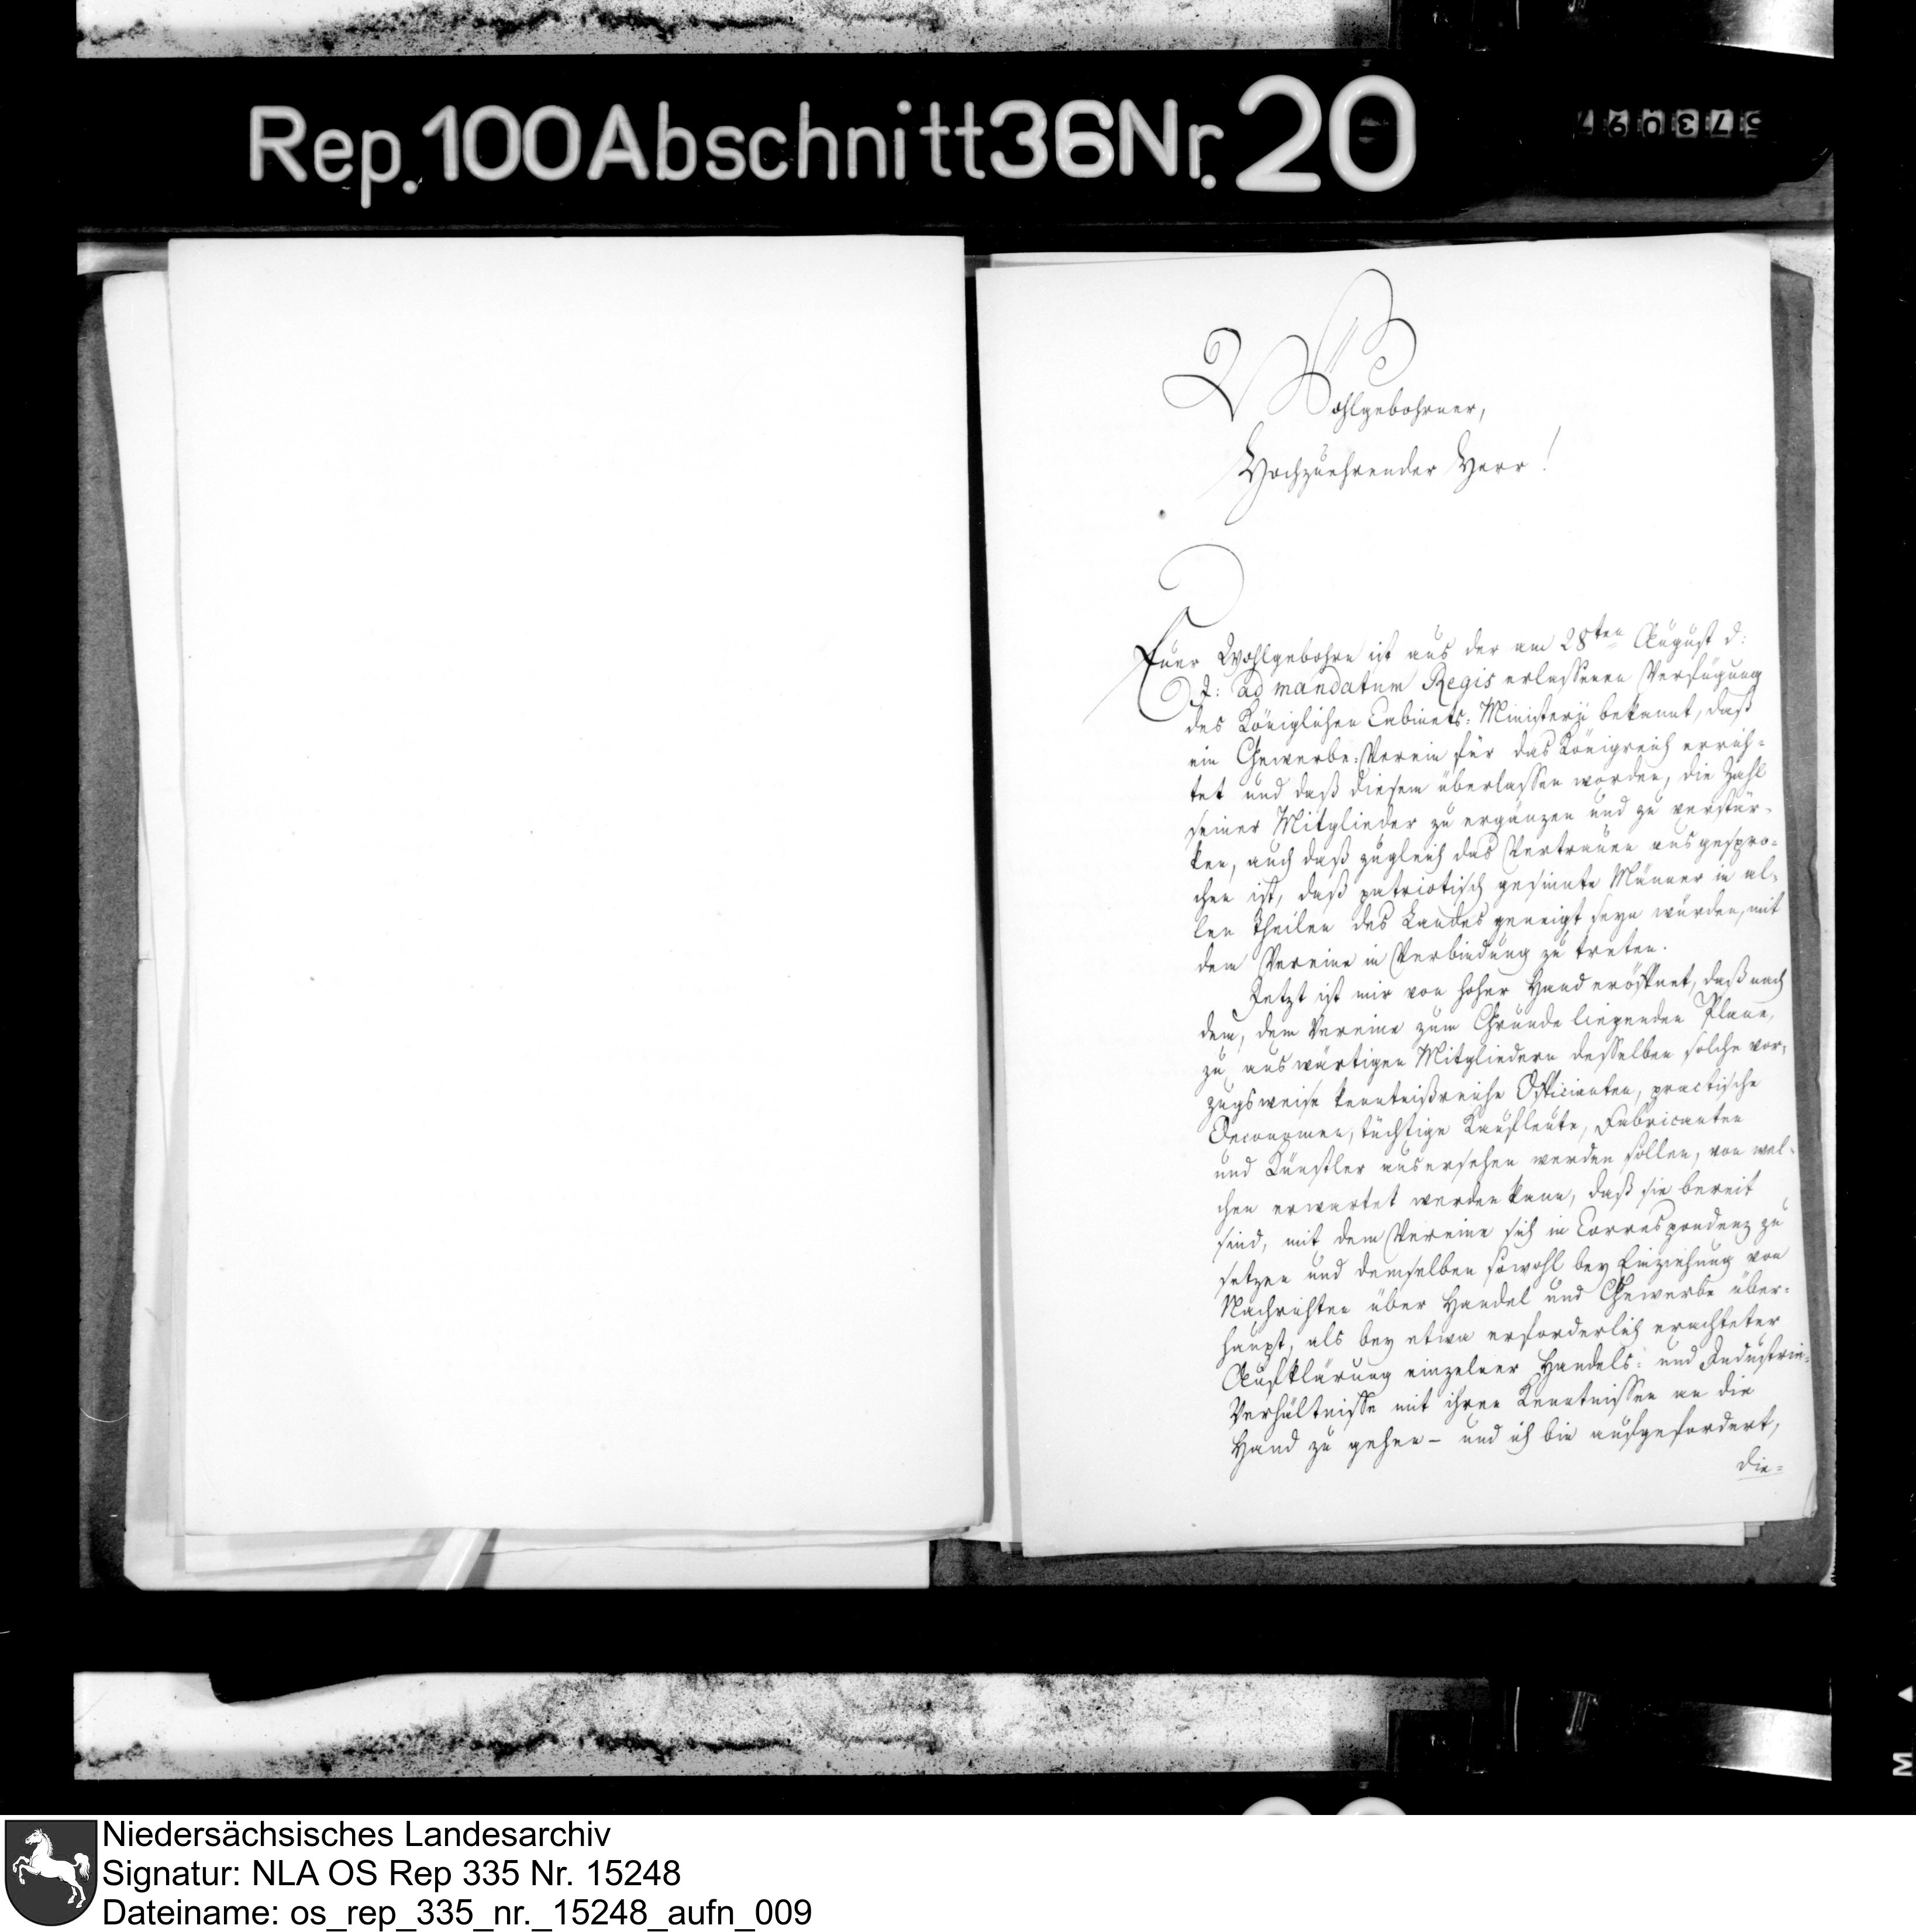 Rep.100Abschnitt36Nr.20
Wohlgebohrner,
Hochzuehrender Herr!
Euer Wohlgebohrn ist aus der am 28ten August d:
J: ad mandatum Regis erlassenen Verfügung
des Königlichen Cabinets-Ministerii bekannt, daß
ein Gewerbe-Verein für das Königreich errich-
tet und daß diesem überlassen worden, die Zahl
seiner Mitglieder zu ergänzen und zu verstär-
ken, auch daß zugleich das Vertrauen ausgespro-
chen ist, daß patriotisch gesinnte Männer in al-
len Theilen des Landes geneigt seyn würden, mit
dem Vereine in Verbindung zu treten.
Jetzt ist mir von hoher Hand eröffnet, daß nach
dem, dem Vereine zum Grunde liegenden Plane,
zu auswärtigen Mitgliedern desselben solche vor-
zugsweise kenntnißreiche Officianten, practische
Oeconomen, tüchtige Kaufleute, Fabricanten
und Künstler ausersehen werden sollen, von wel-
chen erwartet werden kann, daß sie bereit
sind, mit dem Vereine sich in Correspondenz zu
setzen und demselben sowohl bey Einziehung von
Nachrichten über Handel und Gewerbe über-
haupt, als bey etwa erforderlich erachteter
Aufklärung einzelner Handels- und Industrie-
Verhältnisse mit ihren Kenntnissen an die
Hand zu gehen – und ich bin aufgefordert,
die-
M
Niedersächsisches Landesarchiv
Signatur: NLA OS Rep 335 Nr. 15248
Dateiname: os_rep_335_nr._15248_aufn_009